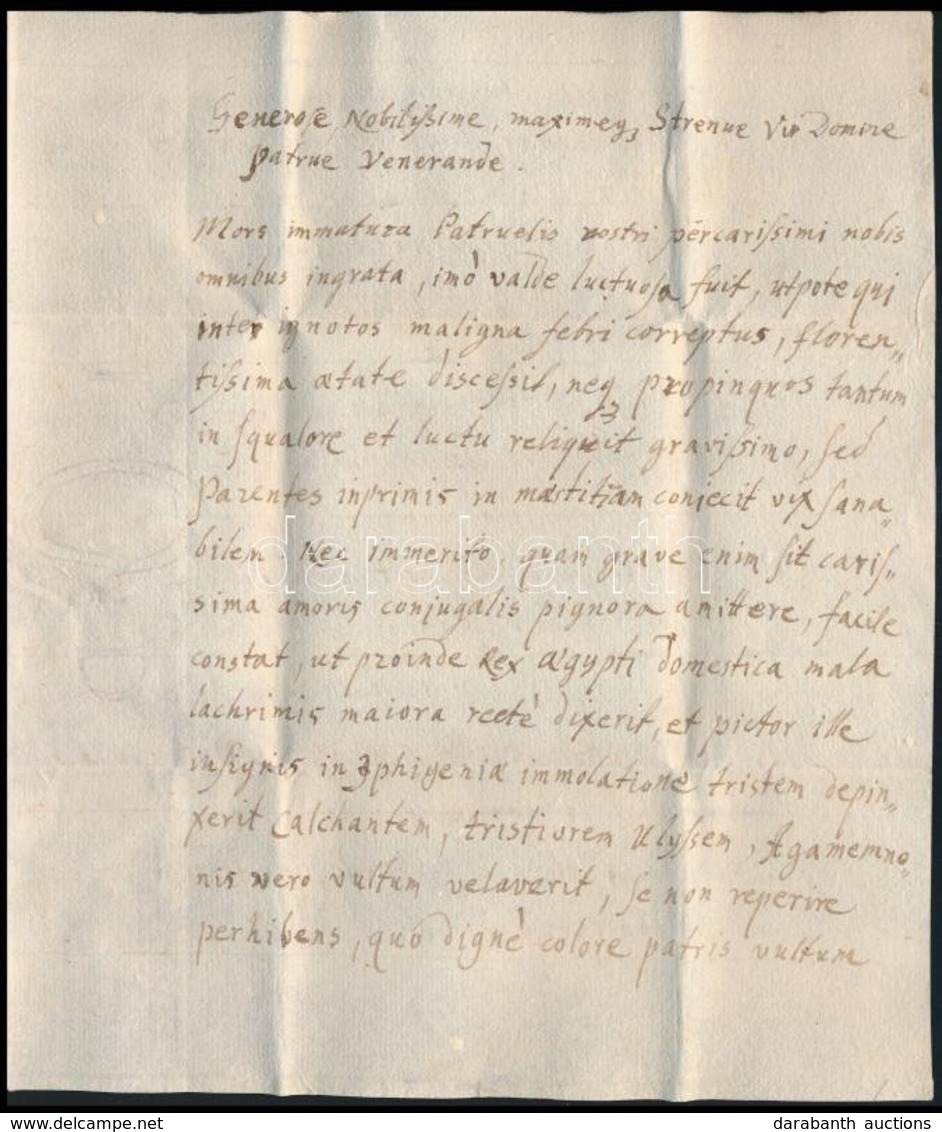 Generose Nobilißime, maximeq₃ Strenue Vir Domine
Patrue Venerande.
Mors immatura Patruelis nostri percarißimi nobis
omnibus ingrata, imò valde luctuosa fuit, utpote qui
inter ignotos maligna febri correptus, floren„
tißima ætate discessit, neq₃ propinquos tantum
in squalore et luctu reliquit gravißimo, sed
Parentes inprimis in mæstitiam coniecit vix sana„
bilem. Nec immerito, quam grave enim sit caris„
sima amoris conjugalis pignora amittere, facile
constat, ut proinde Rex Ægypti domestica mala
lachrimis maiora rectè dixerit, et pictor ille
insignis in Iphigeniæ immolatione tristem depin„
xerit Calchantem, tristiorem Ulyßem, Agamemno„
nis vero vultum velaverit, se non reperire
perhibens, quo dignè colore patris vultum
darabanth
darabanth auctions